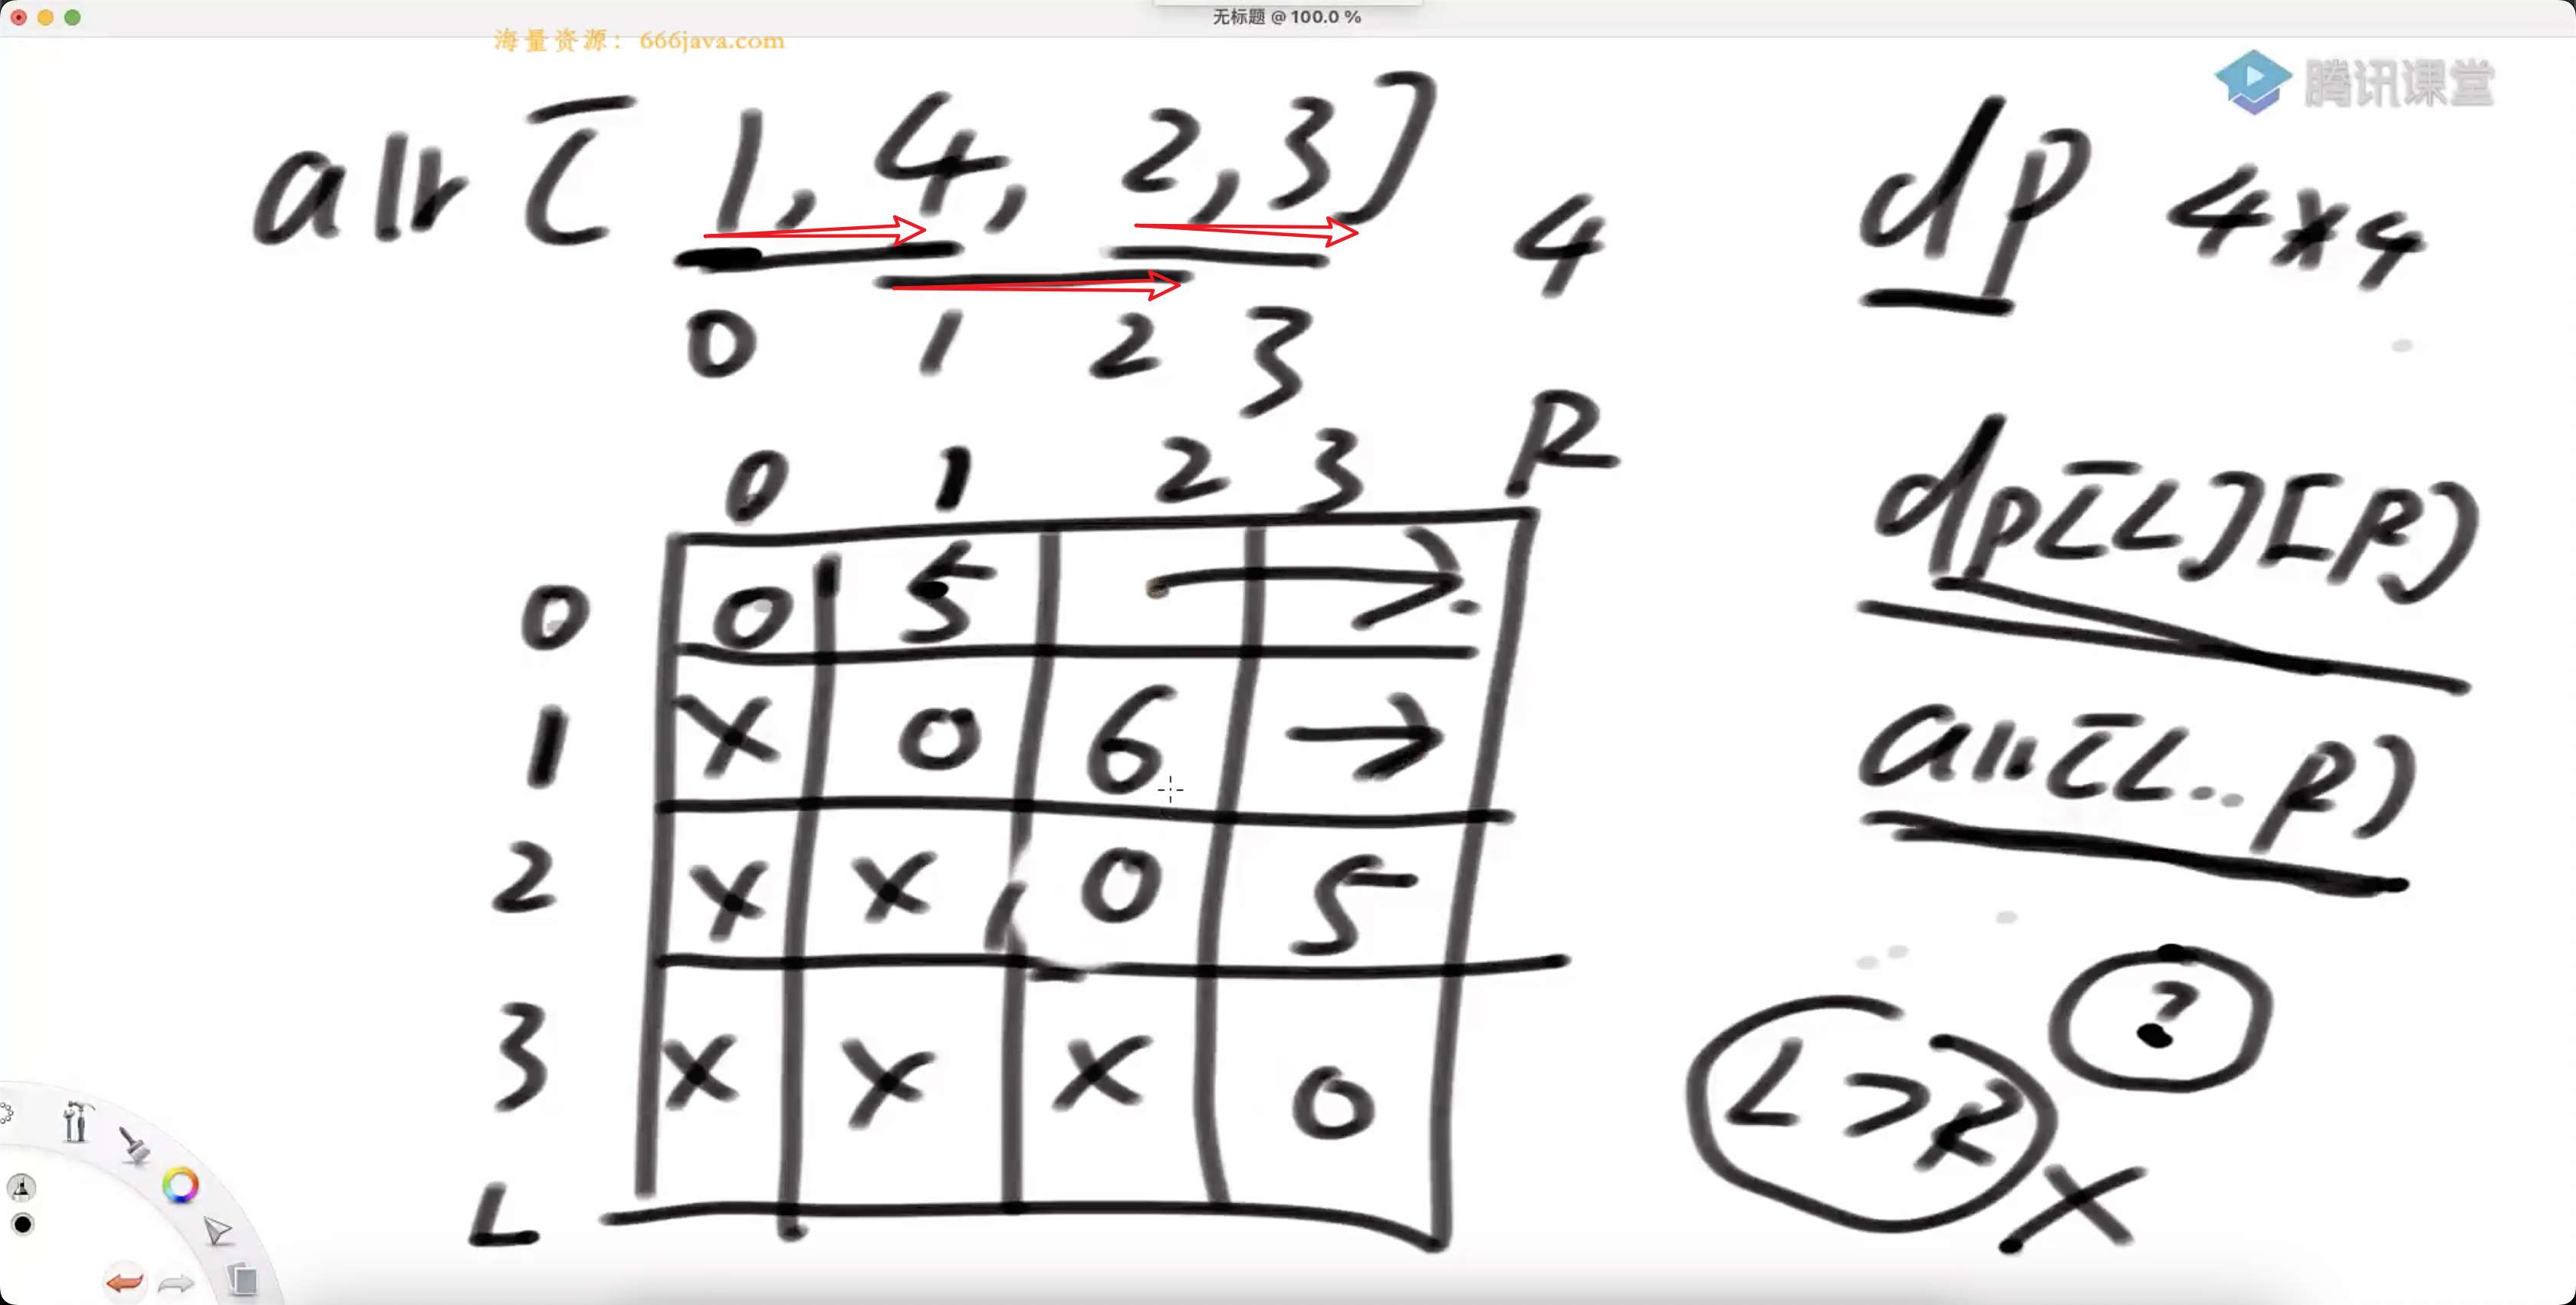 无标题 @ 100.0 %
海量资源：666java.com
腾讯课堂
arr [ 1, 4, 2, 3] 4
0 1 2 3
dp 4x4
0 1 2 3 R
0 0 5
1 X 0 6
2 X X 0 5
3 X X X 0
L
dp[L][R]
arr[L..R]
?
L>R X